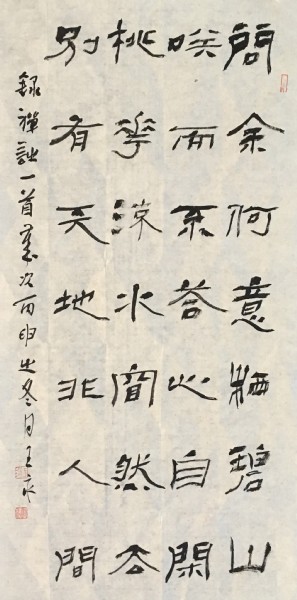 問余何意栖碧山
咲而不荅心自閑
桃華流水然去
別有天地非人間
録禪詩一首歲次丙申之冬月王